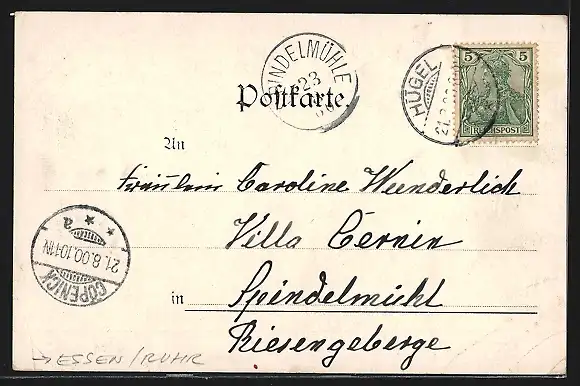 SPINDELMÜHLE
23
HÜGEL
5 5
REICHSPOST
Postkarte.
An
Fräulein Caroline Wunderlich
Villa Czernin
in Spindelmühl
Riesengeberge
a
21.8.00.10-11N
CÖPENICK
→ ESSEN/RUHR